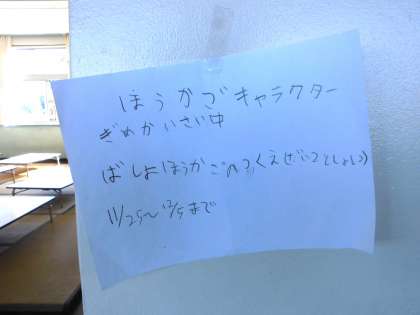 ほうかごキャラクター
ぎめかいさい中
ばしょほうかご つくえ としょしつ
11/25〜12/5まで